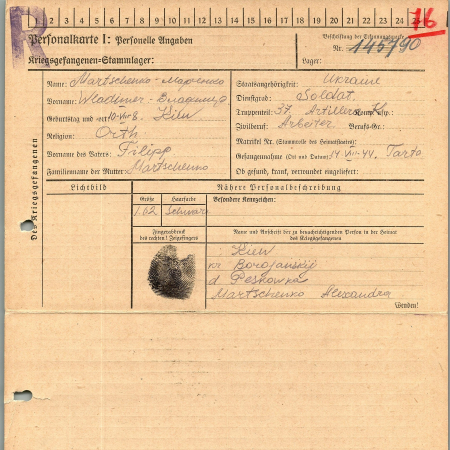 R 2 3 4 5 6 7 8 9 10 11 12 13 14 15 16 17 18 19 20 21 22 23 24 25
16
Personalkarte I: Personelle Angaben
Kriegsgefangenen-Stammlager:
Beschriftung der Erkennungsmarke
Nr. 145790
Lager:
Des Kriegsgefangenen
Name: Martschenko - Марченко
Vorname: Wladimer - Владимир
Geburtstag und -ort: 10.VII. Kiew
Religion: Orth
Vorname des Vaters: Filipp
Familienname der Mutter: Martschenko
Staatsangehörigkeit: Ukraine
Dienstgrad: Soldat.
Truppenteil: 37. Artillerie Komp. usw.:
Zivilberuf: Arbeiter Berufs-Gr.:
Matrikel Nr. (Stammrolle des Heimatstaates):
Gefangennahme (Ort und Datum): 14.VIII.44. Tarto
Ob gesund, krank, verwundet eingeliefert:
Lichtbild
Nähere Personalbeschreibung
Größe Haarfarbe Besondere Kennzeichen:
1.62 Schwarz
Fingerabdruck
des rechten! Zeigefingers
Name und Anschrift der zu benachrichtigenden Person in der Heimat
des Kriegsgefangenen
: Kiew
kr Borojanskij
d Peskowka
Martschenko Alexandra
Wenden!